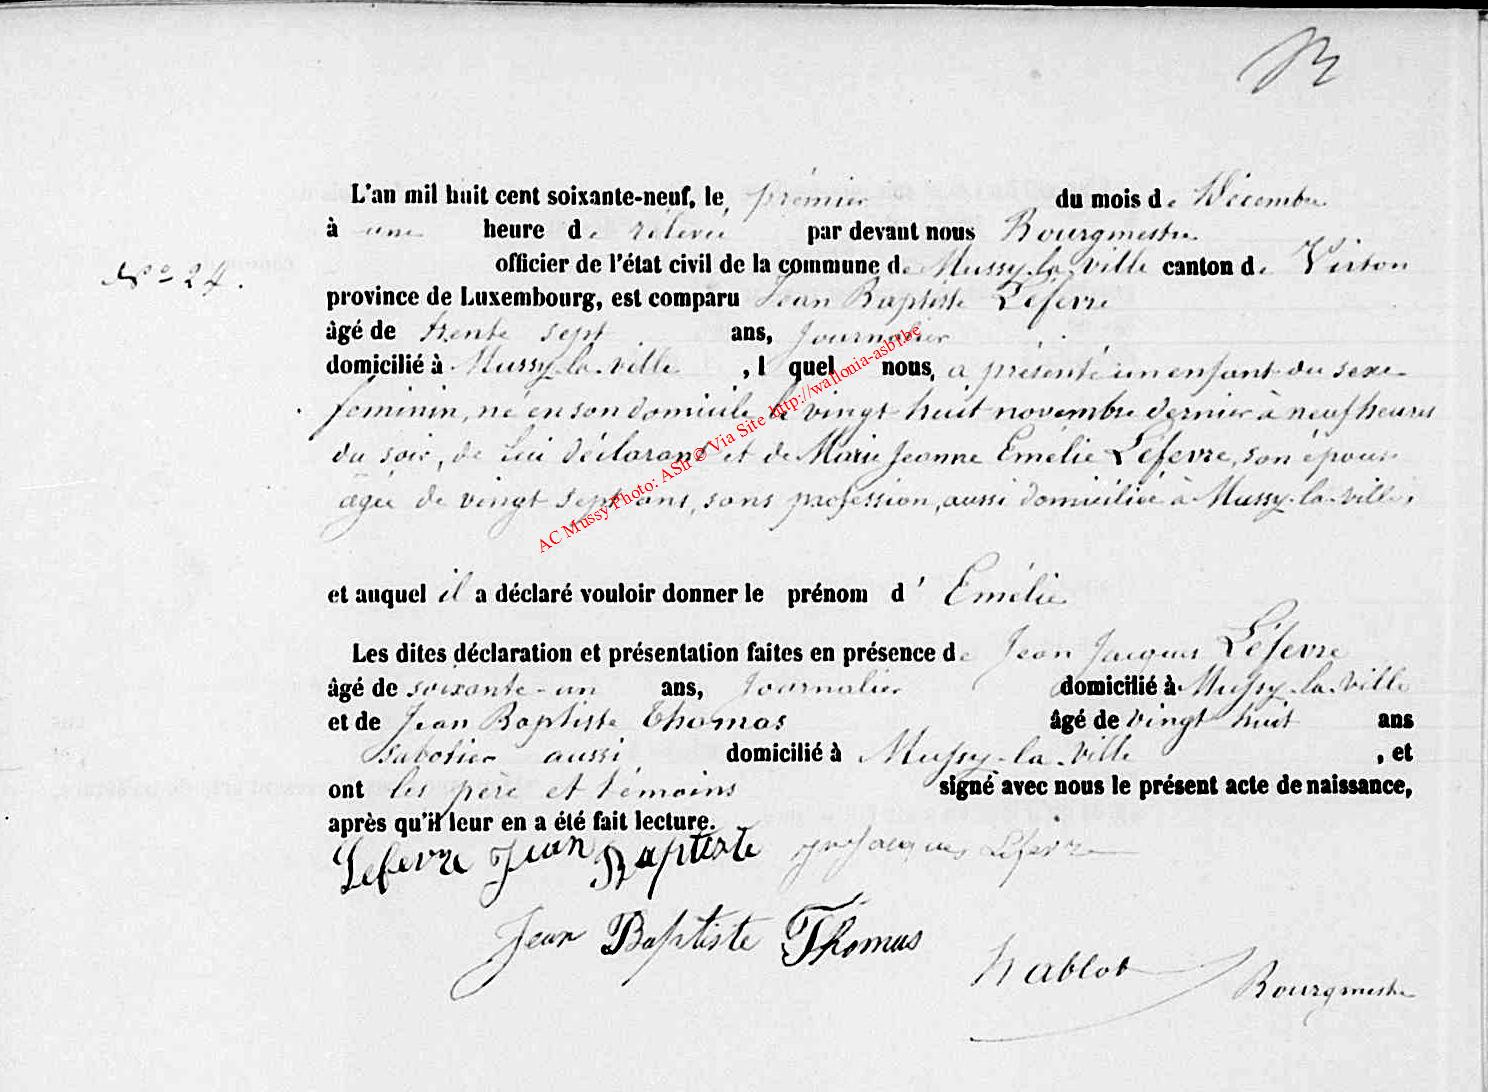 L'an mil huit cent soixante-neuf, le premier du mois de Décembre
à une heure de relevée par devant nous Bourgmestre
officier de l'état civil de la commune de Mussy-la-ville canton de Virton
N° 24.
province de Luxembourg, est comparu Jean Baptiste Lefevre
âgé de trente sept ans, journalier
domicilié à Mussy-la-ville , l quel nous, a présenté un enfant du sexe
féminin, né en son domicile le vingt huit novembre dernier à neuf heures
du soir, de Lui déclarant et de Marie Jeanne Emélie Lefevre, son épouse
âgée de vingt sept ans, sans profession, aussi domiciliée à Mussy-la-ville,
AC Mussy Photo: ASh © Via Site http://wallonia-asbl.be
et auquel il a déclaré vouloir donner le prénom d' Emélie
Les dites déclaration et présentation faites en présence de Jean Jacques Lefevre
âgé de soixante-un ans, journalier domicilié à Mussy-la-ville
et de Jean Baptiste Thomas âgé de vingt huit ans
sabotier aussi domicilié à Mussy-la-ville , et
ont les père et témoins signé avec nous le présent acte de naissance,
après qu'il leur en a été fait lecture.
Lefevre Jean Baptiste Jn Jacques Lefevre
Jean Baptiste Thomas
Bourgmestre